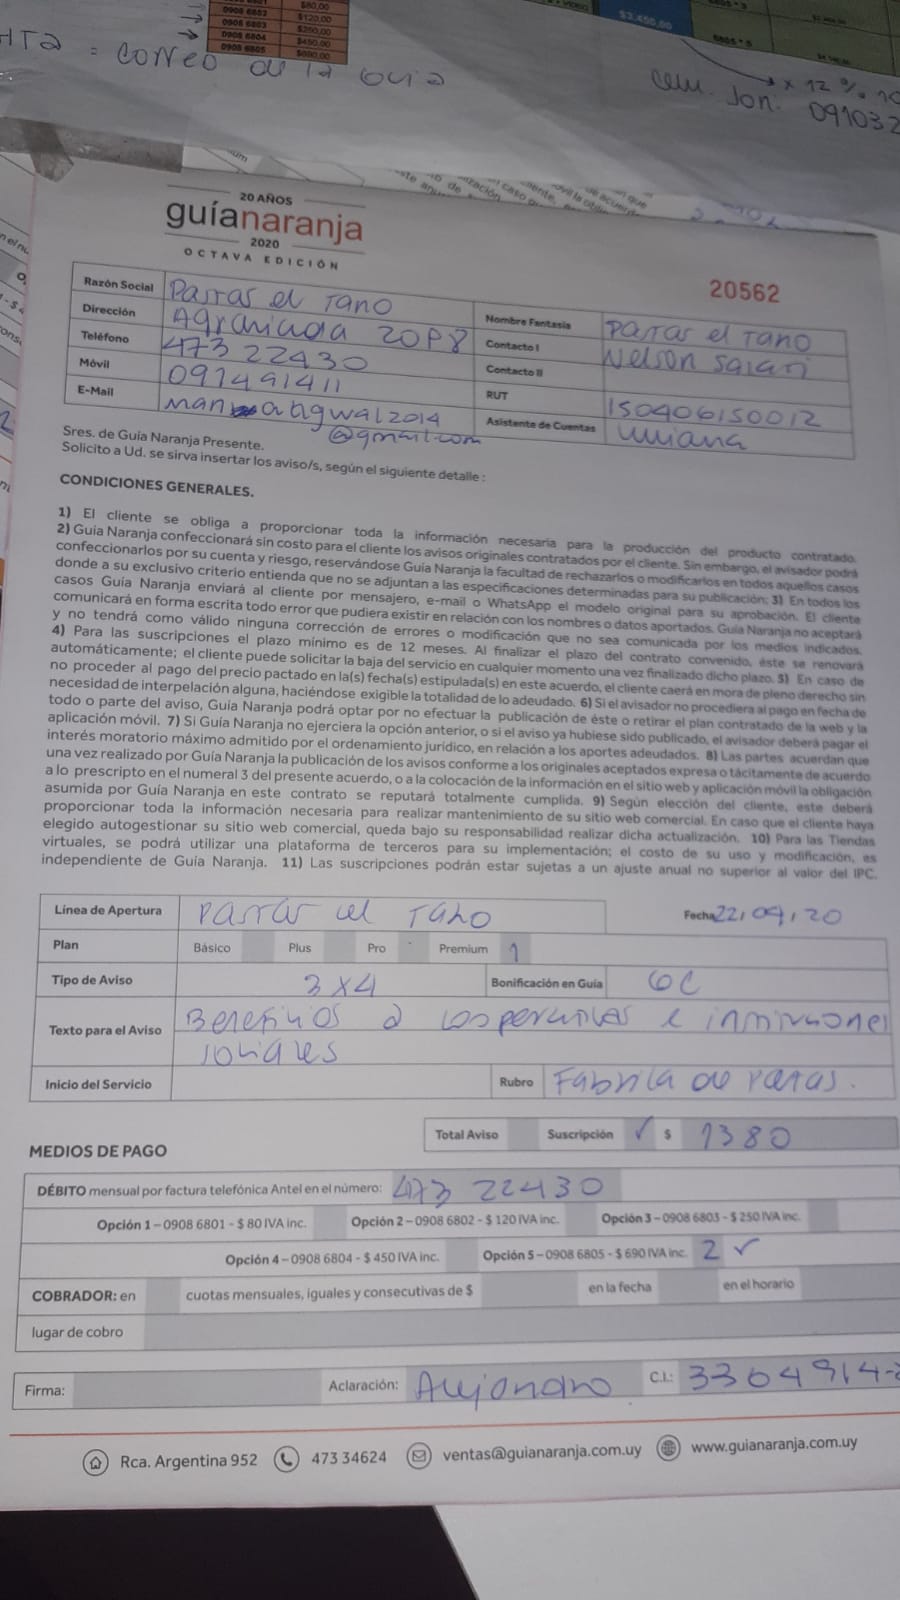 0908 6802 $120,00
0908 6803 $250,00
0908 6804 $450,00
0908 6805 $690,00
$3.450,00
6805 * 5
= Correo de la Guia
x 12 % 10
Cem. Jon: 091032
20 AÑOS
guíanaranja
2020
OCTAVA EDICIÓN
20562
Razón Social Pastas el Tano
Nombre Fantasia Pastas el Tano
Dirección Agraciada 20P8
Contacto I Nelson
Teléfono 473 22430
Contacto II
Móvil 091491411
RUT 150406150012
E-Mail
@gmail.com
Asistente de Cuentas Liliana
Sres. de Guía Naranja Presente.
Solicito a Ud. se sirva insertar los aviso/s, según el siguiente detalle :
CONDICIONES GENERALES.
1) El cliente se obliga a proporcionar toda la información necesaria para la producción del producto contratado.
2) Guía Naranja confeccionará sin costo para el cliente los avisos originales contratados por el cliente. Sin embargo, el avisador podrá
confeccionarlos por su cuenta y riesgo, reservándose Guía Naranja la facultad de rechazarlos o modificarlos en todos aquellos casos
donde a su exclusivo criterio entienda que no se adjuntan a las especificaciones determinadas para su publicación; 3) En todos los
casos Guía Naranja enviará al cliente por mensajero, e-mail o WhatsApp el modelo original para su aprobación. El cliente
comunicará en forma escrita todo error que pudiera existir en relación con los nombres o datos aportados. Guía Naranja no aceptará
y no tendrá como válido ninguna corrección de errores o modificación que no sea comunicada por los medios indicados.
4) Para las suscripciones el plazo mínimo es de 12 meses. Al finalizar el plazo del contrato convenido, éste se renovará
automáticamente; el cliente puede solicitar la baja del servicio en cualquier momento una vez finalizado dicho plazo. 5) En caso de
no proceder al pago del precio pactado en la(s) fecha(s) estipulada(s) en este acuerdo, el cliente caerá en mora de pleno derecho sin
necesidad de interpelación alguna, haciéndose exigible la totalidad de lo adeudado. 6) Si el avisador no procediera al pago en fecha de
todo o parte del aviso, Guía Naranja podrá optar por no efectuar la publicación de éste o retirar el plan contratado de la web y la
aplicación móvil. 7) Si Guía Naranja no ejerciera la opción anterior, o si el aviso ya hubiese sido publicado, el avisador deberá pagar el
interés moratorio máximo admitido por el ordenamiento jurídico, en relación a los aportes adeudados. 8) Las partes acuerdan que
una vez realizado por Guía Naranja la publicación de los avisos conforme a los originales aceptados expresa o tácitamente de acuerdo
a lo prescripto en el numeral 3 del presente acuerdo, o a la colocación de la información en el sitio web y aplicación móvil la obligación
asumida por Guía Naranja en este contrato se reputará totalmente cumplida. 9) Según elección del cliente, este deberá
proporcionar toda la información necesaria para realizar mantenimiento de su sitio web comercial. En caso que el cliente haya
elegido autogestionar su sitio web comercial, queda bajo su responsabilidad realizar dicha actualización. 10) Para las Tiendas
virtuales, se podrá utilizar una plataforma de terceros para su implementación; el costo de su uso y modificación, es
independiente de Guía Naranja. 11) Las suscripciones podrán estar sujetas a un ajuste anual no superior al valor del IPC.
Línea de Apertura Pastas el Tano Fecha 22/09/20
Plan Básico Plus Pro Premium 1
Tipo de Aviso 3x4 Bonificación en Guía 6C
Texto para el Aviso Beneficios a cooperativas e instituciones
sociales
Inicio del Servicio Rubro Fabrica de Pastas.
Total Aviso Suscripción ✓ $ 1380
MEDIOS DE PAGO
DÉBITO mensual por factura telefónica Antel en el número: 473 22430
Opción 1 – 0908 6801 - $ 80 IVA inc. Opción 2 – 0908 6802 - $ 120 IVA inc. Opción 3 – 0908 6803 - $ 250 IVA inc.
Opción 4 – 0908 6804 - $ 450 IVA inc. Opción 5 – 0908 6805 - $ 690 IVA inc. 2 ✓
COBRADOR: en cuotas mensuales, iguales y consecutivas de $ en la fecha en el horario
lugar de cobro
Firma: Aclaración: Alejandro C.I.: 3364914-
Rca. Argentina 952 473 34624 ventas@guianaranja.com.uy www.guianaranja.com.uy